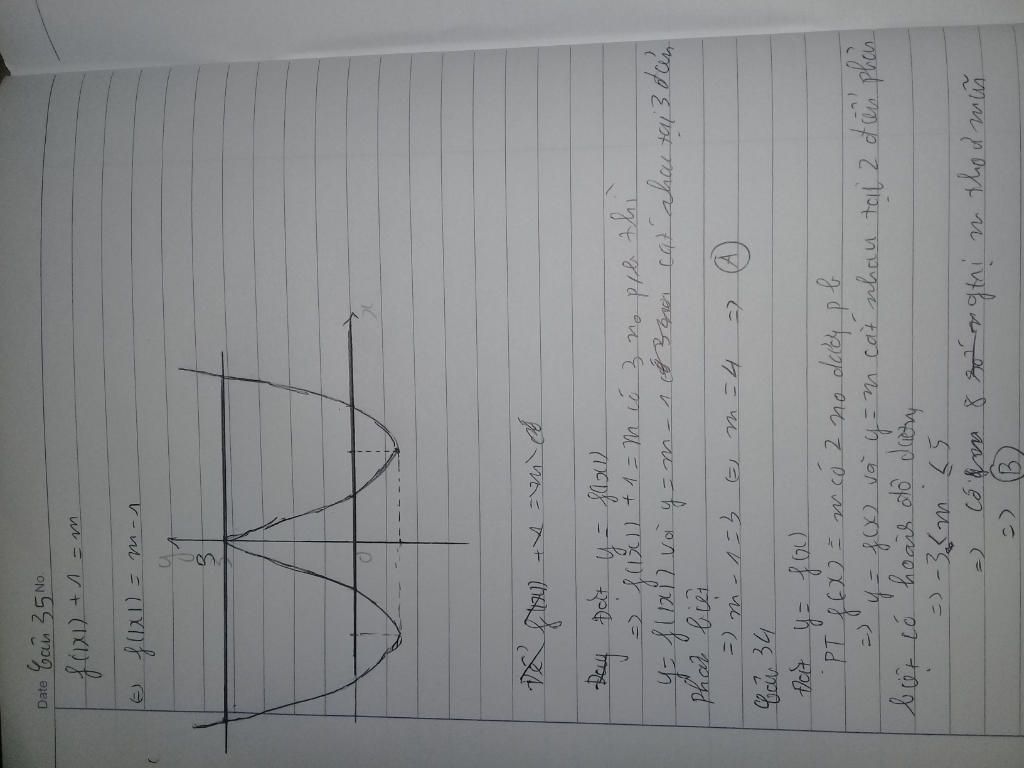 Date No.
Câu 35
f(|x|) + 1 = m
⇔ f(|x|) = m - 1
y
3
O
x
Đặt y = f(|x|)
⇒ f(|x|) + 1 = m có 3 no pb thì
y = f(|x|) và y = m - 1 cắt nhau tại 3 điểm
phân biệt
⇒ m - 1 = 3 ⇔ m = 4 ⇒ A
Câu 34
Đặt y = f(x)
PT f(x) = m có 2 no dương pb
⇒ y = f(x) và y = m cắt nhau tại 2 điểm phân
biệt có hoành độ dương
⇒ -3 < m ≤ 5
⇒ Có 8 gtrị m thoả mãn
⇒ B